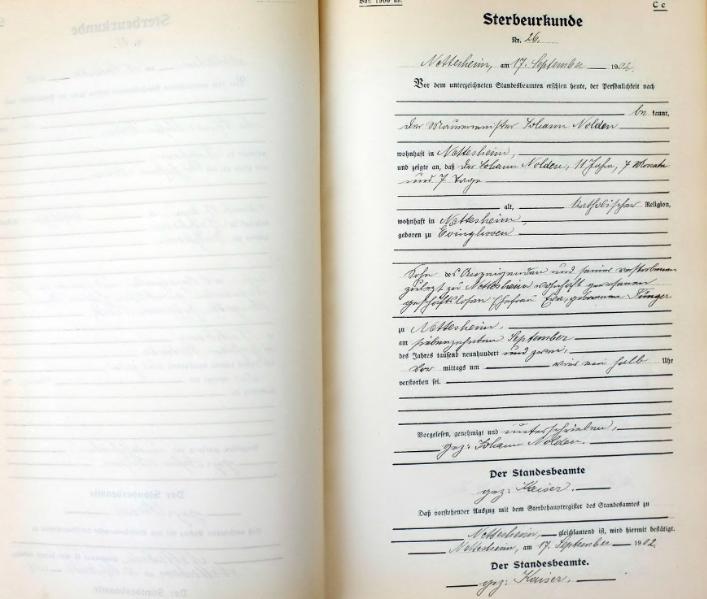 C c
Sterbeurkunde
Nr. 26.
Nettesheim, am 17. September 1902.
Vor dem unterzeichneten Standesbeamten erschien heute, der Persönlichkeit nach
be kannt,
der Johann Nolden
wohnhaft in Nettesheim,
und zeigte an, daß der Johann Nolden, 11 Jahre, 7 Monate
und 7 Tage
alt, katholischer Religion,
wohnhaft in Nettesheim,
geboren zu Evinghoven
Sohn des Anzeigenden und seiner verstorbenen
zuletzt zu Nettesheim wohnhaft gewesenen
geschäftslosen Ehefrau geborenen
zu Nettesheim,
am siebenzehnten September
des Jahres tausend neunhundert und zwei,
Vor mittags um ein halb Uhr
verstorben sei.
Vorgelesen, genehmigt und unterschrieben,
gez: Johann Nolden.
Der Standesbeamte
gez: Kaiser.
Daß vorstehender Auszug mit dem Sterbehauptregister des Standesamtes zu
Nettesheim, gleichlautend ist, wird hiermit bestätigt.
Nettesheim, am 17. September 1902.
Der Standesbeamte.
gez: Kaiser.